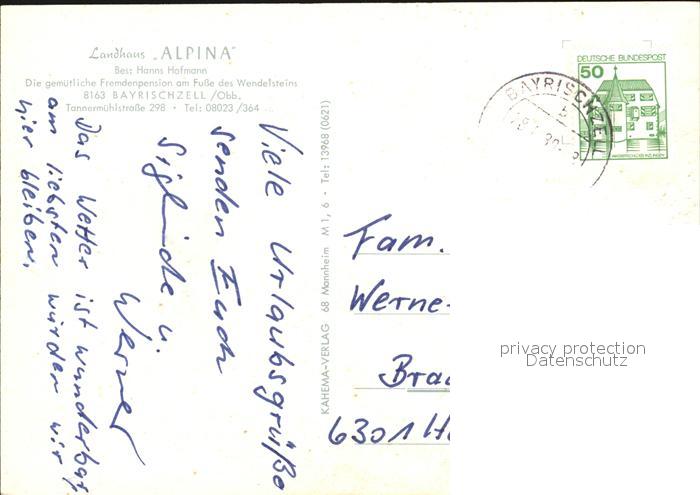 Landhaus „ALPINA"
Bes: Hanns Hofmann
Die gemütliche Fremdenpension am Fuße des Wendelsteins
8163 BAYRISCHZELL /Obb.
Tannermühlstraße 298 • Tel: 08023 /364
Viele Urlaubsgrüße
senden Euch
Siglinde u.
Werner
Das Wetter ist wunderbar,
am liebsten würden wir
hier bleiben.
KAHEMA-VERLAG 68 Mannheim M 1, 6 - Tel: 13968 (0621)
DEUTSCHE BUNDESPOST
50
BAYRISCHZELL
Fam.
Werne
Brau
6301 H
privacy protection
Datenschutz